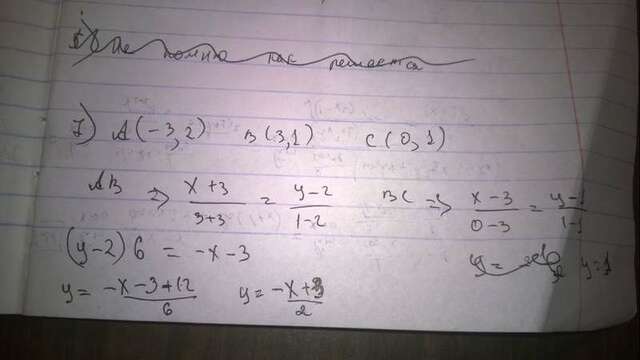 не помню как решается
7) A(-3,2) B(3,1) C(0,1)
AB => (x+3)/(3+3) = (y-2)/(1-2) BC => (x-3)/(0-3) = (y-1)/(1-1)
(y-2)6 = -x-3
y=1
y = (-x-3+12)/6 y = (-x+3)/2